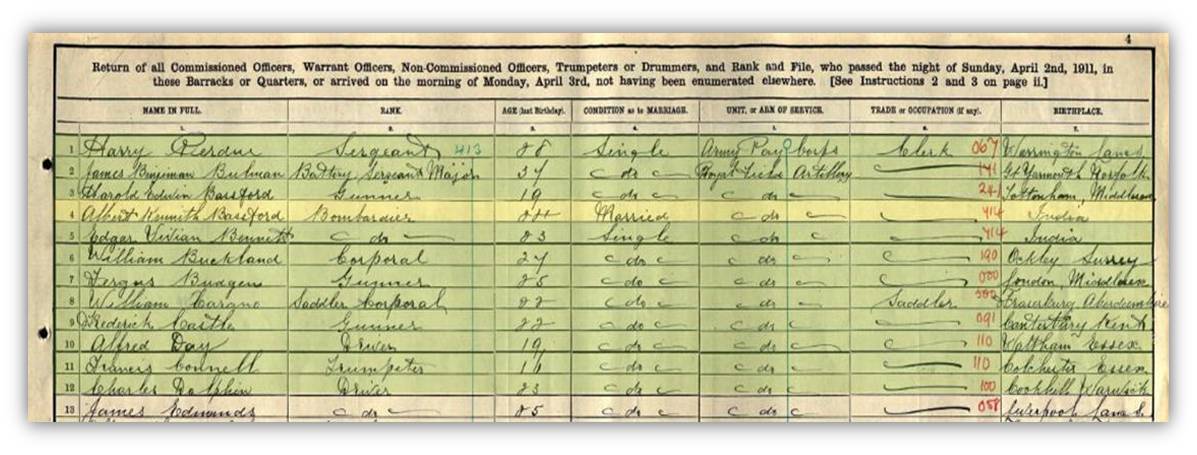 4
Return of all Commissioned Officers, Warrant Officers, Non-Commissioned Officers, Trumpeters or Drummers, and Rank and File, who passed the night of Sunday, April 2nd, 1911, in
these Barracks or Quarters, or arrived on the morning of Monday, April 3rd, not having been enumerated elsewhere. [See Instructions 2 and 3 on page ii.]
NAME IN FULL. RANK. AGE (last Birthday). CONDITION as to MARRIAGE. UNIT, or ARM OF SERVICE. TRADE or OCCUPATION (if any). BIRTHPLACE.
1. 2. 3. 4. 5. 6. 7.
1 Harry Sergeant 413 28 Single Army Pay Corps Clerk 067 Warrington Lancs
2 James Binjiman Bulman Battery Sergeant Major 37 do Royal Field Artillery 141 Gt Yarmouth Norfolk
3 Harold Edwin Bassford Gunner 19 do do 241 Tottenham, Middlesex
4 Albert Kennith Bassford Bombardier 24 Married do 414 India
5 Edgar Vivian Bennett do 23 Single do 414 India
6 William Buckland Corporal 27 do do 190 Ockley Surrey
7 Fergus Budgen Gunner 25 do do 000 London, Middlesex
8 William Saddler Corporal 22 do do Saddler Aberdeenshire
9 Frederick Castle Gunner 22 do do 091 Canterbury Kent
10 Alfred Day Driver 19 do do 110 Waltham Essex
11 Francis Connell Trumpeter 16 do do 110 Colchester Essex
12 Charles Dolphin Driver 23 do do 100 Warwick
13 James Edmunds do 25 do do 058 Liverpool Lancs